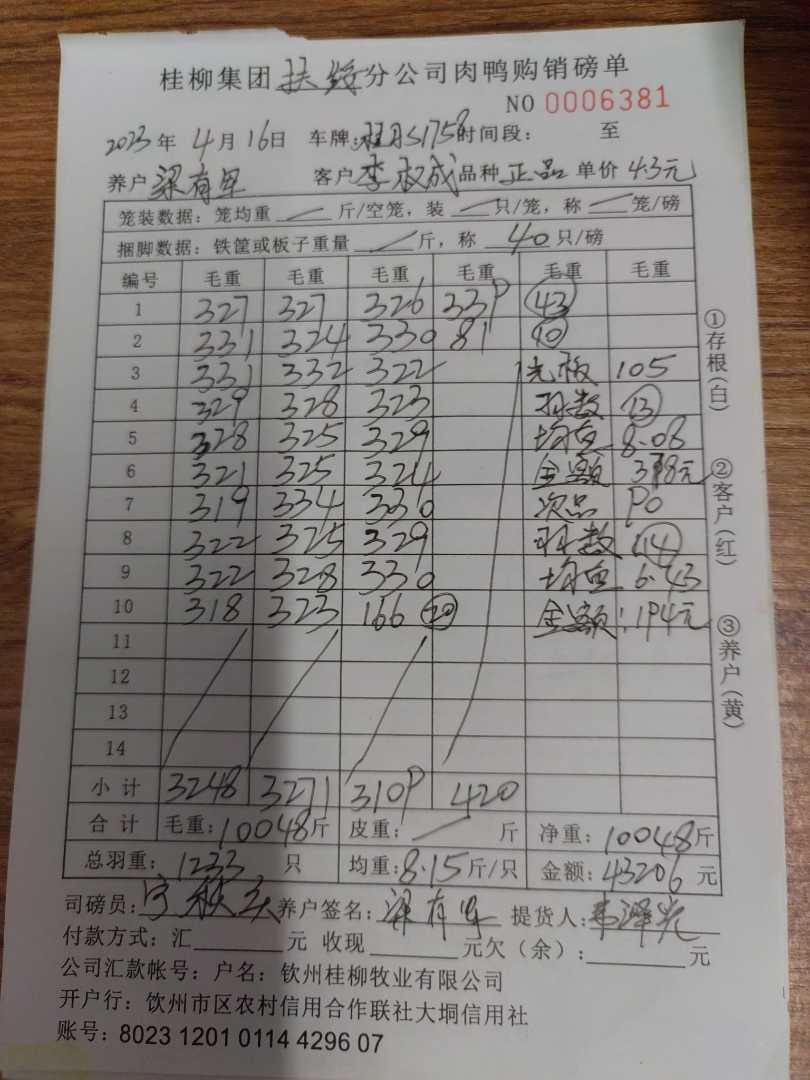 桂柳集团扶绥分公司肉鸭购销磅单
NO 0006381
2023年 4月 16日 车牌: 时间段: 至
养户 梁有军 客户 李权成 品种 正品 单价 4.3元
笼装数据: 笼均重 斤/空笼, 装 只/笼, 称 笼/磅
捆脚数据: 铁筐或板子重量 斤, 称 40 只/磅
编号 毛重 毛重 毛重 毛重 毛重 毛重
1 327 327 326 339 43
2 331 324 330 81 10
3 331 332 322 光板 105
4 329 328 323 羽数 13
5 328 325 329 均重 8.08
6 321 325 324 金额
7 319 334 330 次品 90
8 322 325 329 羽数 14
9 322 328 330 均重 6.43
10 318 323 166 20 金额: 194元
11
12
13
14
小计 3248 3271 3109 420
合计 毛重: 10048斤 皮重: 斤 净重: 10048斤
总羽重: 1233 只 均重: 8.15斤/只 金额: 43206 元
①存根(白)
②客户(红)
③养户(黄)
司磅员: 养户签名: 梁有军 提货人:
付款方式: 汇 元 收现 元欠(余): 元
公司汇款帐号: 户名: 钦州桂柳牧业有限公司
开户行: 钦州市区农村信用合作联社大垌信用社
账号: 8023 1201 0114 4296 07